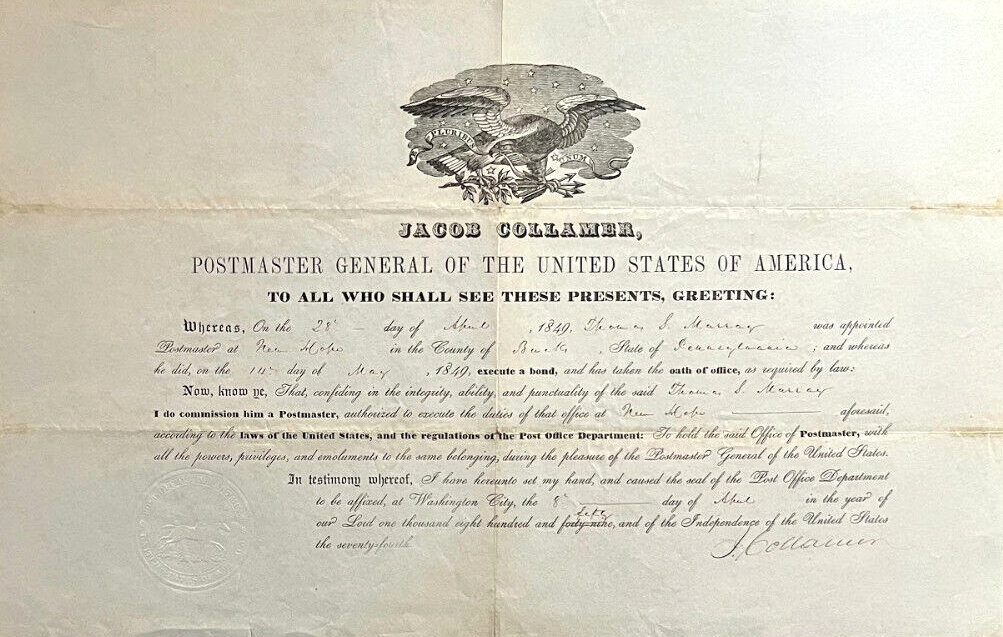 E PLURIBUS UNUM
JACOB COLLAMER,
POSTMASTER GENERAL OF THE UNITED STATES OF AMERICA,
TO ALL WHO SHALL SEE THESE PRESENTS, GREETING:
Whereas, On the 28th day of April, 1849, Thomas S. Murray was appointed
Postmaster at New Hope in the County of Bucks, State of Pennsylvania; and whereas
he did, on the 14th day of May, 1849, execute a bond, and has taken the oath of office, as required by law:
Now, know ye, That, confiding in the integrity, ability, and punctuality of the said Thomas S. Murray
I do commission him a Postmaster, authorized to execute the duties of that office at New Hope aforesaid,
according to the laws of the United States, and the regulations of the Post Office Department: To hold the said Office of Postmaster, with
all the powers, privileges, and emoluments to the same belonging, during the pleasure of the Postmaster General of the United States.
In testimony whereof, I have hereunto set my hand, and caused the seal of the Post Office Department
to be affixed, at Washington City, the 8th day of April in the year of
our Lord one thousand eight hundred and forty-nine, and of the Independence of the United States
the seventy-fourth.
J. Collamer